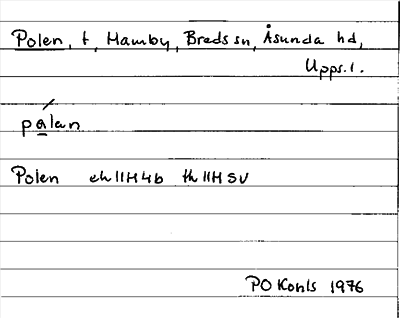 Polen, t, Hamby, Breds sn, Åsunda hd,
Upps. l.
pa̲lan
Polen ek 11H4b th 11H SV
PO Konls 1976